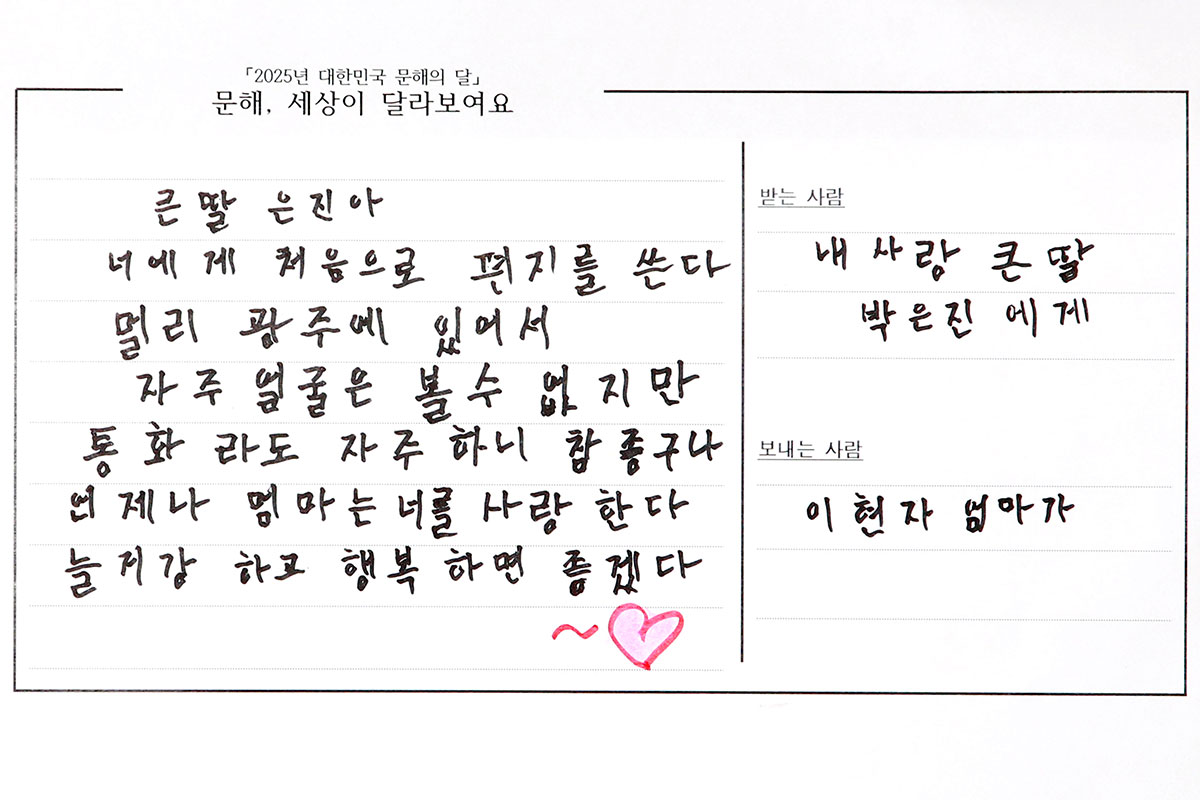 「2025년 대한민국 문해의 달」
문해, 세상이 달라보여요
큰 딸 은진아
너에게 처음으로 편지를 쓴다
멀리 광주에 있어서
자주 얼굴은 볼수 없지만
통화 라도 자주하니 참 종구나
언제나 엄마는 너를 사랑 한다
늘 저강 하고 행복 하면 종겠다
~♡
받는 사람
내 사랑 큰 딸
박은진 에게
보내는 사람
이현자 엄마가